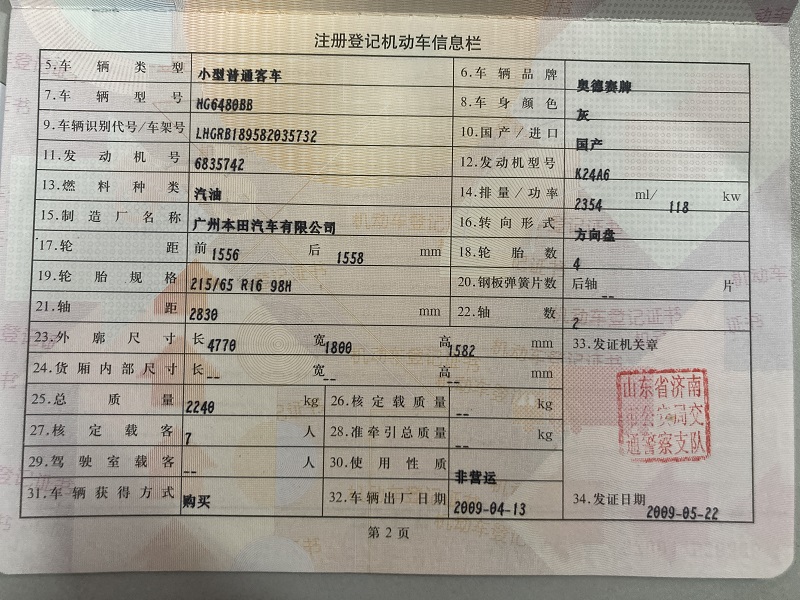 注册登记机动车信息栏
5.车辆类型 小型普通客车 6.车辆品牌 奥德赛牌
7.车辆型号 HG6480BB 8.车身颜色 灰
9.车辆识别代号/车架号 LHGRB189582035732 10.国产/进口 国产
11.发动机号 6835742 12.发动机型号 K24A6
13.燃料种类 汽油 14.排量/功率 2354 ml/ 118 kw
15.制造厂名称 广州本田汽车有限公司 16.转向形式 方向盘
17.轮距 前 1556 后 1558 mm 18.轮胎数 4
19.轮胎规格 215/65 R16 98H 20.钢板弹簧片数 后轴 -- 片
21.轴距 2830 mm 22.轴数 2
23.外廓尺寸 长 4770 宽 1800 高 1582 mm 33.发证机关章
24.货厢内部尺寸 长 -- 宽 -- 高 -- mm
25.总质量 2240 kg 26.核定载质量 -- kg
27.核定载客 7 人 28.准牵引总质量 -- kg
29.驾驶室载客 -- 人 30.使用性质 非营运
31.车辆获得方式 购买 32.车辆出厂日期 2009-04-13 34.发证日期 2009-05-22
山东省济南
市公安局交
通警察支队
第2页